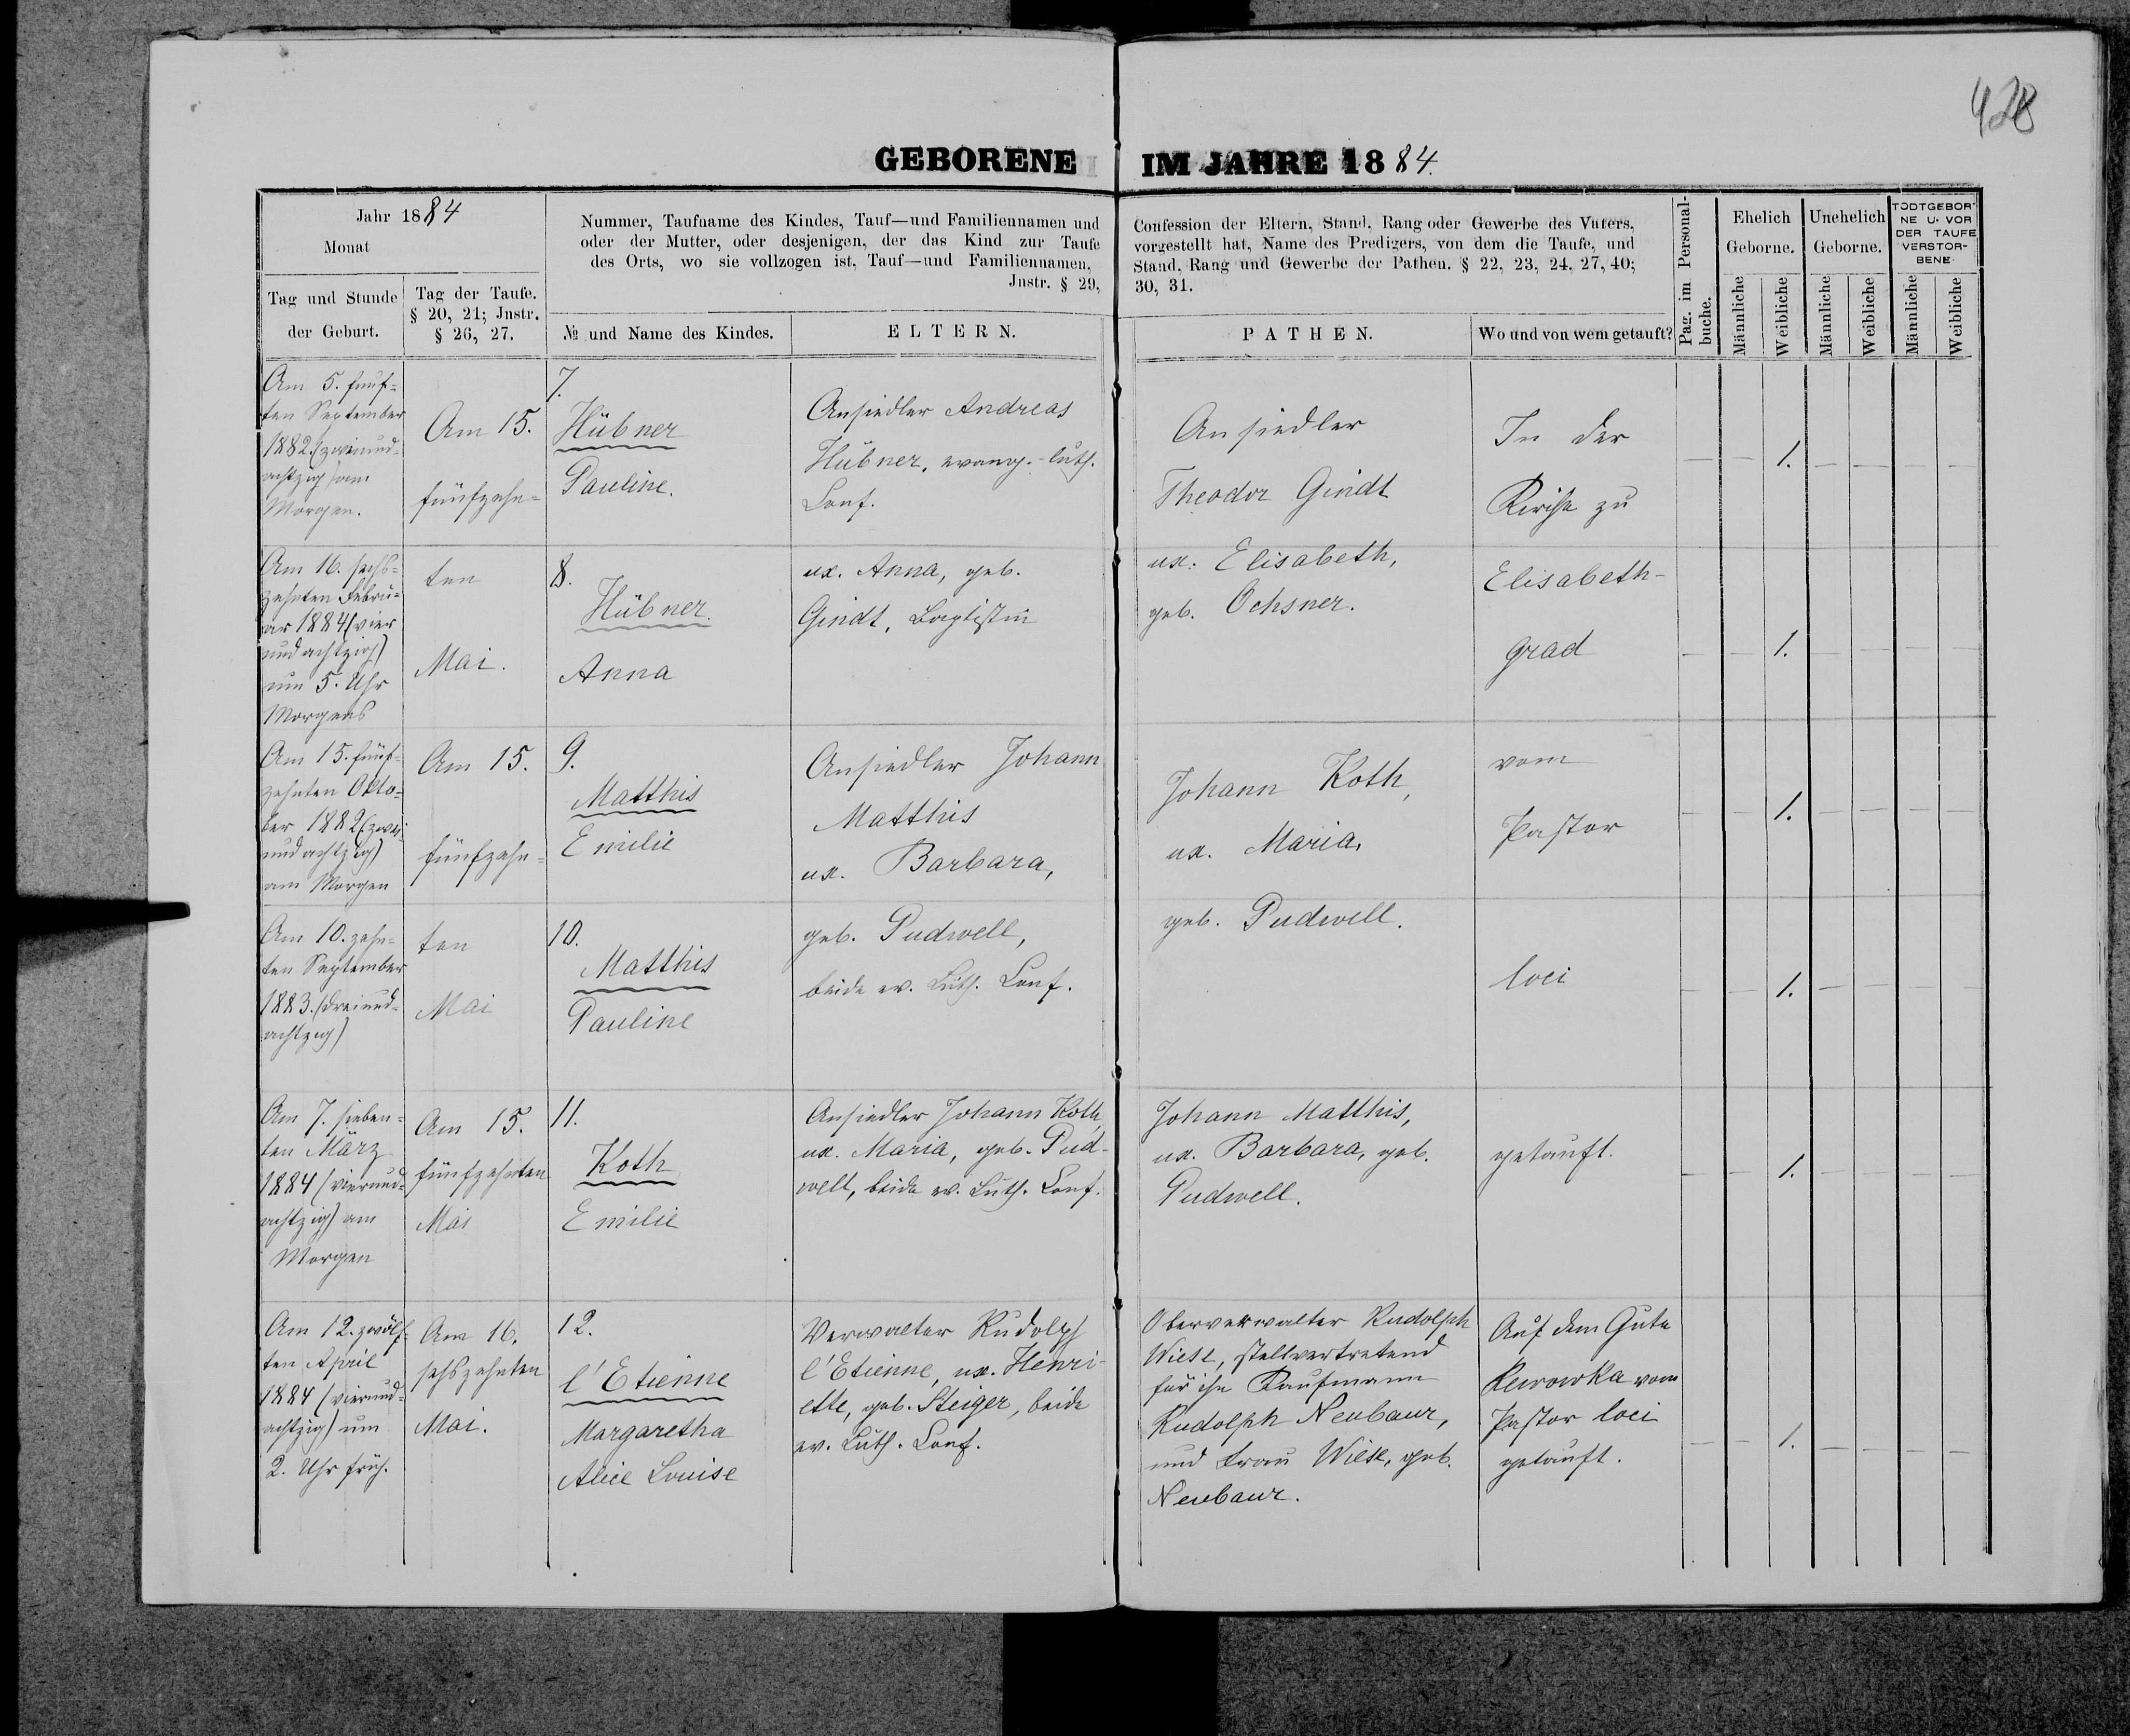 428
GEBORENE IM JAHRE 1884.
Jahr 1884
Monat
Tag und Stunde
der Geburt.
Tag der Taufe.
§ 20, 21; Jnstr.
§ 26, 27.
Nummer, Taufname des Kindes, Tauf—und Familiennamen und
oder der Mutter, oder desjenigen, der das Kind zur Taufe
des Orts, wo sie vollzogen ist, Tauf—und Familiennamen,
Jnstr. § 29,
№ und Name des Kindes.
ELTERN.
Confession der Eltern, Stand, Rang oder Gewerbe des Vaters,
vorgestellt hat, Name des Predigers, von dem die Taufe, und
Stand, Rang und Gewerbe der Pathen. § 22, 23, 24, 27, 40;
30, 31.
PATHEN.
Wo und von wem getauft?
Pag. im Personal-
buche.
Ehelich
Geborne.
Unehelich
Geborne.
TODTGEBOR-
NE U. VOR
DER TAUFE
VERSTOR-
BENE.
Männliche
Weibliche
Männliche
Weibliche
Männliche
Weibliche
Am 5. fünf-
ten September
1882. (zweiund-
achtzig) am
Morgen.
Am 15.
fünfzehn-
7.
Hübner
Pauline.
Ansiedler Andreas
Hübner, evang.-luth.
Conf.
Ansiedler
Theodor Gindt
In der
Kirche zu
1.
Am 16. sechs-
zehnten Febru-
ar 1884 (vier
und achtzig)
um 5. Uhr
Morgens
ten
Mai.
8.
Hübner.
Anna
ux. Anna, geb.
Gindt, Baptistin
ux. Elisabeth,
geb. Ochsner.
Elisabeth-
grad
1.
Am 15. fünf-
zehnten Okto-
ber 1882 (zwei
und achtzig)
am Morgen
Am 15.
fünfzehn-
9.
Matthis
Emilie
Ansiedler Johann
Matthis
ux. Barbara,
Johann Koth,
ux. Maria,
vom
Pastor
1.
Am 10. zehn-
ten September
1883. (dreiund-
achtzig)
ten
Mai
10.
Matthis
Pauline
geb. Pudwell,
beide ev. Luth. Conf.
geb. Pudwell.
loci
1.
Am 7. sieben-
ten März
1884 (vierund-
achtzig) am
Morgen
Am 15.
fünfzehnten
Mai
11.
Koth
Emilie
Ansiedler Johann Koth,
ux. Maria, geb. Pud-
well, beide ev. Luth. Conf.
Johann Matthis,
ux. Barbara, geb.
Pudwell.
getauft.
1.
Am 12. zwölf-
ten April
1884 (vierund-
achtzig) um
2. Uhr früh.
Am 16.
sechszehnten
Mai.
12.
l'Etienne
Margaretha
Alice Louise
Verwalter Rudolph
l'Etienne, ux. Henri-
ette, geb. Steiger, beide
ev. Luth. Conf.
Oberverwalter Rudolph
Wiese, stellvertretend
für ihn Kaufmann
Rudolph Neubaur,
und Frau Wiese, geb.
Neubaur.
Auf dem Gute
Rewowka vom
Pastor loci
getauft.
1.